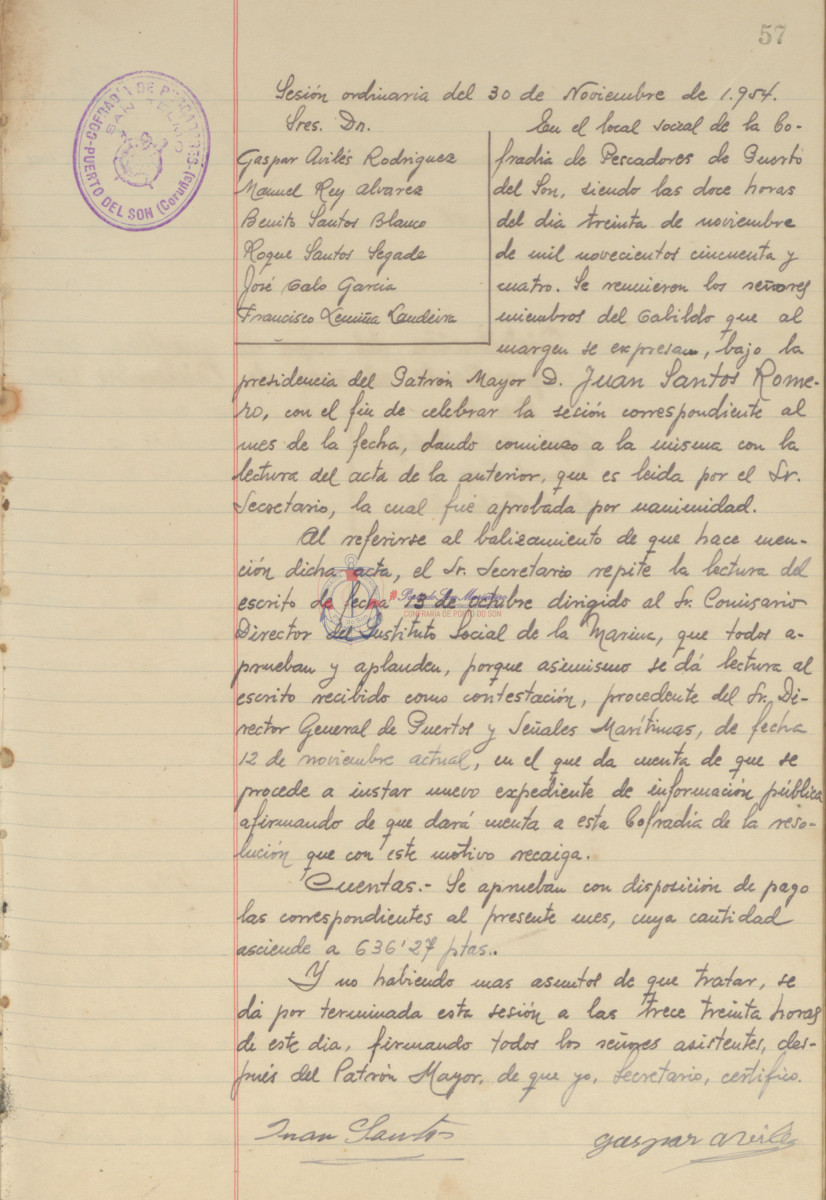 57
COFRADIA DE PESCADORES
SAN TELMO
PUERTO DEL SON (Coruña)
Sesión ordinaria del 30 de Noviembre de 1.954.
Sres. Dn.
Gaspar Avilés Rodriguez
Manuel Rey Alvarez
Benito Santos Blanco
Roque Santos Segade
José Calo Garcia
Francisco Lemiña Landeira
En el local social de la Co-
fradia de Pescadores de Puerto
del Son, siendo las doce horas
del dia treinta de noviembre
de mil novecientos cincuenta y
cuatro. Se reunieron los señores
miembros del Cabildo que al
margen se expresan, bajo la
presidencia del Patrón Mayor D. Juan Santos Rome-
ro, con el fin de celebrar la sesión correspondiente al
mes de la fecha, dando comienzo a la misma con la
lectura del acta de la anterior, que es leida por el Sr.
Secretario, la cual fué aprobada por unanimidad.
Al referirse al balizamiento de que hace men-
ción dicha acta, el Sr. Secretario repite la lectura del
escrito de fecha 13 de octubre dirigido al Sr. Comisario
CONFRARIA DE PORTO DO SON
Director del Instituto Social de la Marina, que todos a-
prueban y aplauden, porque asimismo se dá lectura al
escrito recibido como contestación, procedente del Sr. Di-
rector General de Puertos y Señales Marítimas, de fecha
12 de noviembre actual, en el que da cuenta de que se
procede a instar nuevo expediente de información pública
afirmando de que dará cuenta a esta Cofradia de la reso-
lución que con este motivo recaiga.
Cuentas.- Se aprueban con disposición de pago
las correspondientes al presente mes, cuya cantidad
asciende a 636'27 ptas..
Y no habiendo mas asuntos de que tratar, se
dá por terminada esta sesión a las trece treinta horas
de este dia, firmando todos los señores asistentes, des-
pués del Patrón Mayor, de que yo, Secretario, certifico.
Juan Santos
Gaspar Aviles